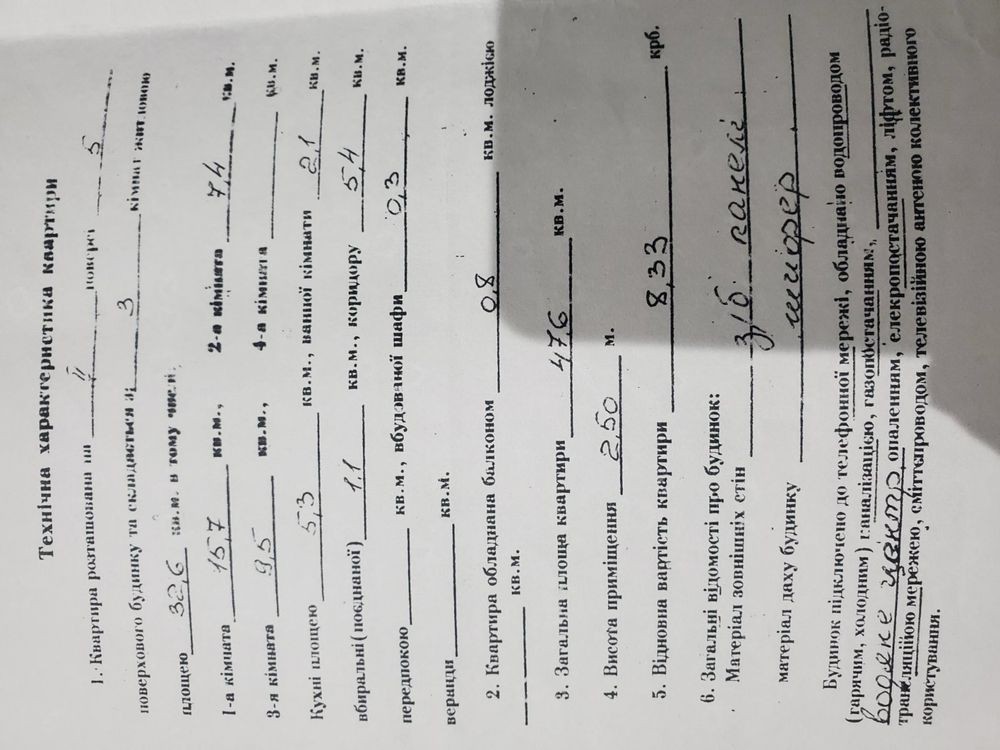 Технічна характеристика квартири
1. Квартира розташована на II поверсі 5
поверхового будинку та складається з 3 кімнат житловою
площею 32,6 кв.м. в тому числі:
1-а кімната 15,7 кв.м., 2-а кімната 7,4 кв.м.
3-я кімната 9,5 кв.м., 4-а кімната кв.м.
Кухні площею 5,3 кв.м., ванної кімнати 2,1 кв.м.
вбиральні(поєднаної) 1,1 кв.м., коридору 5,4 кв.м.
передпокою кв.м., вбудованої шафи 0,3 кв.м.
веранди кв.м.
2. Квартира обладнана балконом 0,8 кв.м. лоджією
кв.м.
3. Загальна площа квартири 47,6 кв.м.
4. Висота приміщення 2,50 м.
5. Відновна вартість квартири 8,33 крб.
6. Загальні відомості про будинок:
Матеріал зовнішніх стін з/б панелі
матеріал даху будинку шифер
Будинок підключено до телефонної мережі, обладнано водопроводом
(гарячим, холодним) каналізацією, газопостачанням,
водяне центр. опаленням, елекропостачанням, ліфтом, радіо-
трансляційою мережею, сміттєпроводом, телевізійною антеною колективного
користування.